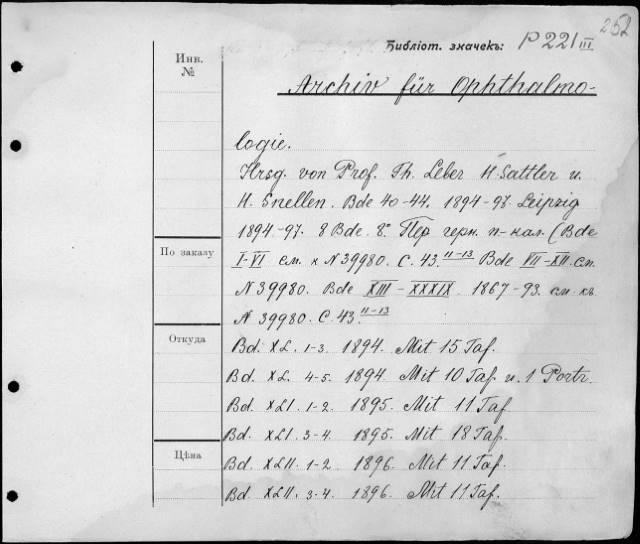 252
Библiот. значекъ: P 221 III
Инв. №
Archiv für Ophthalmo-
logie.
Hrsg. von Prof. Th. Leber H. Sattler u.
H. Snellen. Bde 40-44. 1894-97. Leipzig
1894-97. 8 Bde. 8º Пер. герм. п- нал. (Bde
По заказу
I-VI см. к N 39980. С. 43. 11-13 Bde VII-XII. см.
N 39980. Bde XIII-XXXIX. 1867-93. см. къ
N 39980. С. 43. 11-13
Откуда
Bd. XL. 1-3. 1894. Mit 15 Taf.
Bd. XL. 4-5. 1894. Mit 10 Taf. u. 1 Portr.
Bd. XLI. 1-2. 1895. Mit 11 Taf.
Bd. XLI. 3-4. 1895. Mit 18 Taf.
Цѣна
Bd. XLII. 1-2. 1896. Mit 11 Taf.
Bd. XLII. 3-4. 1896. Mit 11 Taf.